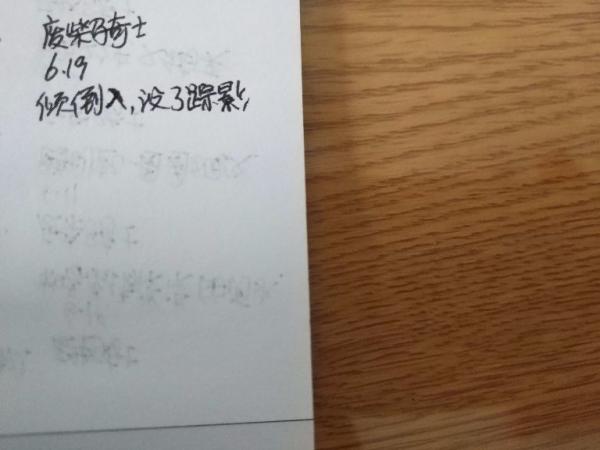 废柴骑士
6.19
倾倒入,没了踪影